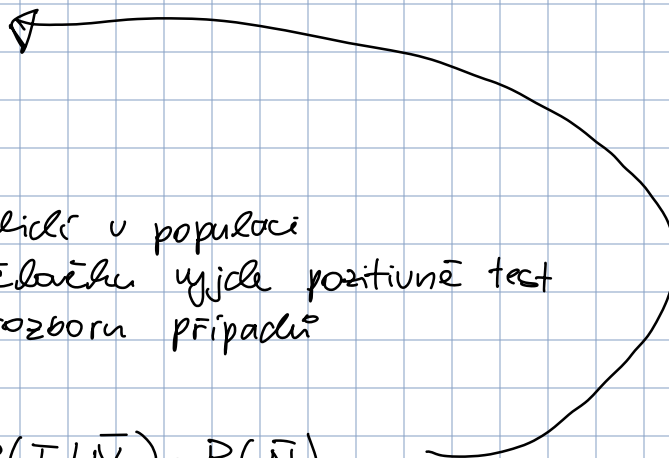 lidí v populaci
člověku vyjde pozitivně test
rozboru případů
P(T|N̄) · P(N̄)